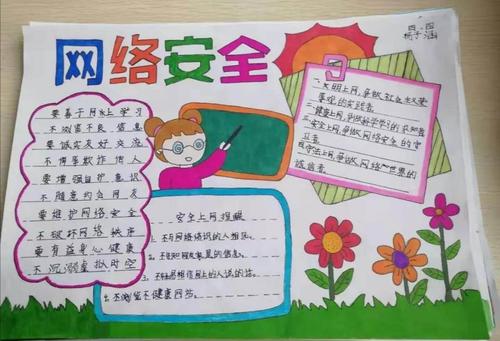 四.四
杨子涵
网络安全
要善于网上学习
不浏览不良信息
要诚实友好交流
不侮辱欺诈他人
要增强自护意识
不随意约会网友
要维护网络安全
不破坏网络秩序
要有益身心健康
不沉溺虚拟时空
一.文明上网,争做社会主义荣
辱观的实践者。
二.健康上网,争做科学学习的
三.安全上网,争做网络安全的守
卫者。
四.守法上网,争做网络世界的
诚信者。
安全上网提醒
1.不与网络结识的人相见。
2.不
3.不
4.不浏览不健康网站。